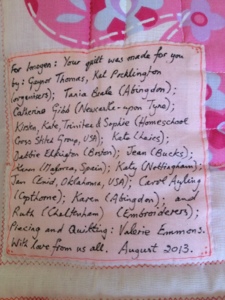 For Imogen: Your quilt was made for you
by: Gaynor Thomas, Kat Pocklington
(organisers); Tania Beale (Abingdon);
Catherine Gibb (Newcastle-upon Tyne);
Kirsten, Kate, Trinitea & Sophie (Homeschool
Cross Stitch Group, USA); Kate
Debbie (Boston); Jean (Bucks);
(Majorca, Spain); Katy (Nottingham);
Jan (Enid, Oklahoma, USA); Carol Ayling
(Copthorne); Karen (Abingdon); and
Ruth (Cheltenham) (Embroiderers);
Piecing and Quilting: Valerie Emmons.
With love from us all. August 2013.